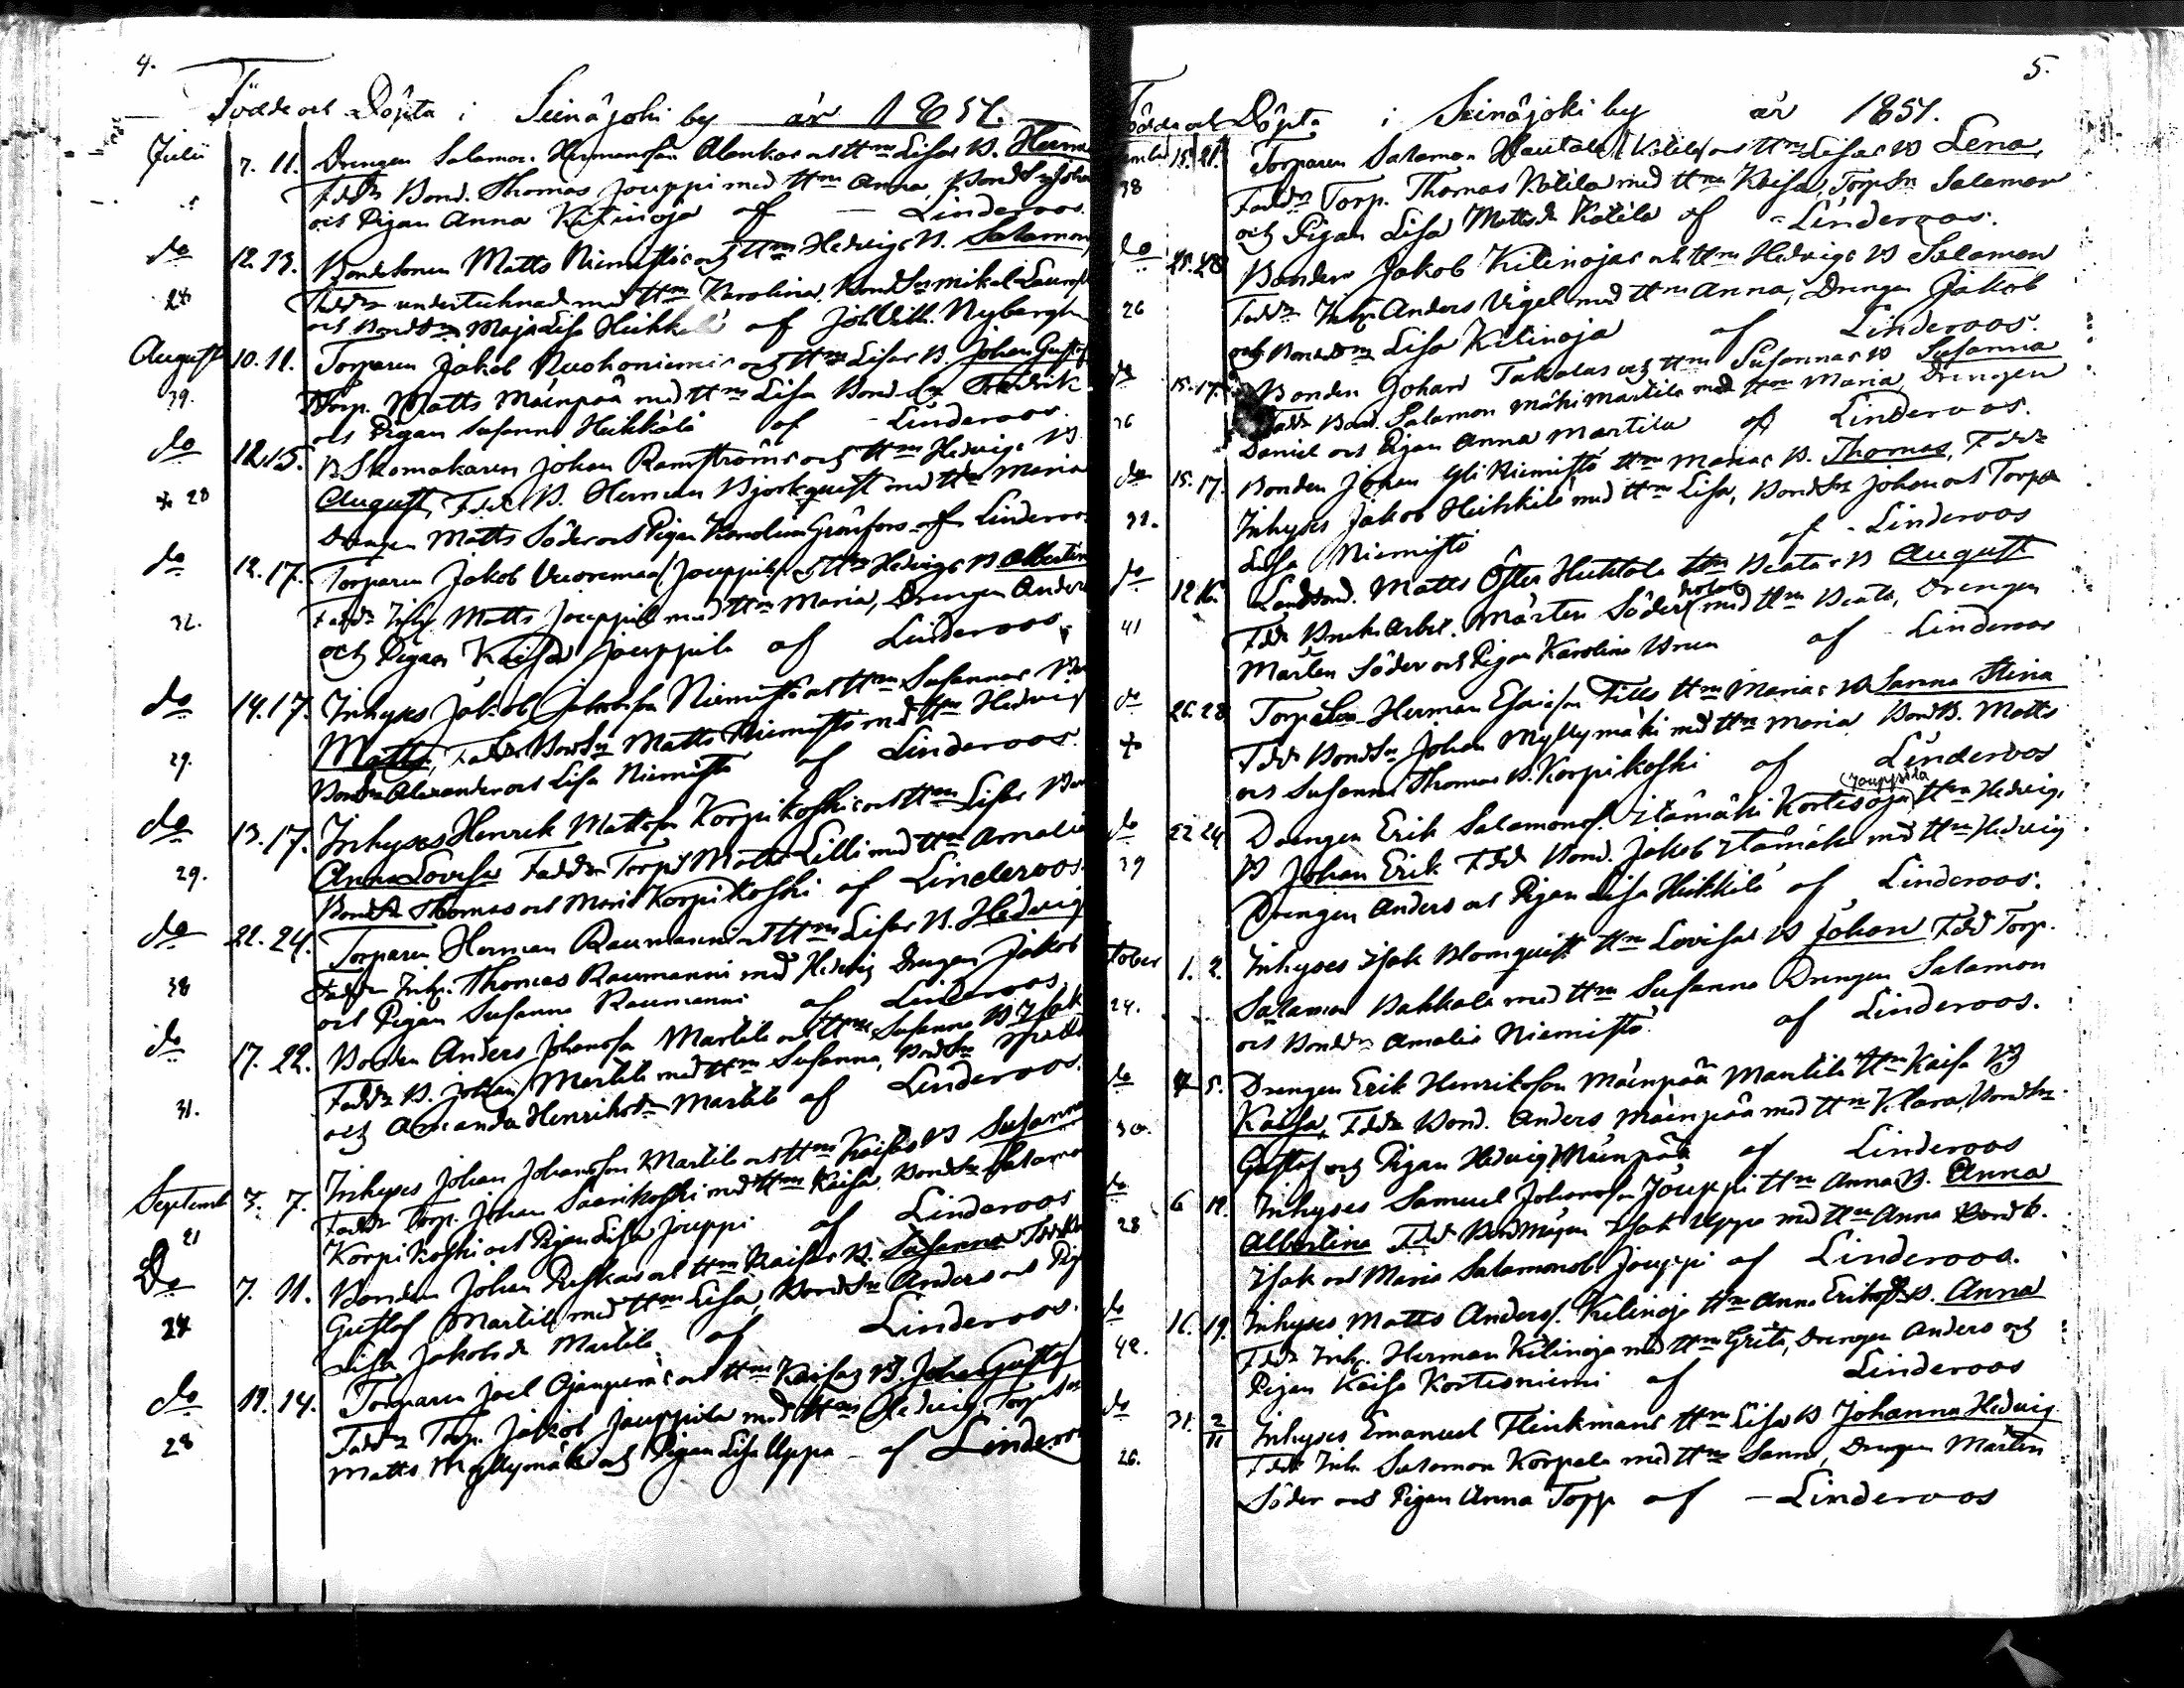 4.
Födde och Döpta i Seinäjoki by år 1851.
Julii 7. 11. Drengen Salamon Hermansson Alenkas och Hm Lisas B. Herma
Fadd. Bond. Thomas Jouppi med Hm Anna, BondSn Joha
och Pigan Anna Kilinoja af — Linderoos.
do 12. 13. Bondsonen Matts Niemistös och Hm Hedvigs B. Salamon
28 Faddr undertecknad med Hm Karolina, BondSn Mikel
och BondDn Maja Lisa Heikkilä af Joh. Nybergh
August 10. 11. Torparen Jakob Ruohoniemis och Hm Lisas B. Johan Gustaf
39. Torp. Matts Mäenpää med Hm Lisa BondSn Fredrik
och Pigan Susanna Heikkilä af - Linderoos.
do 12. 15. Skomakaren Johan Ramströms och Hm Hedvigs B.
28 August, Fadd. B. Herman Björkqvist med Hm Maria
Drengen Matts Söder och Pigan Karolina af Linderoos
do 12. 17. Torparen Jakob Vuorenmaa (Jouppila) och Hm Hedvigs B Albertina
32. Faddr Inh. Matts Jouppila med Hm Maria, Drengen Anders
och Pigan Kaisa Jouppila af Linderoos.
do 14. 17. Inhyses Jakob Jakobsson Niemistös och Hm Susannas
29. Matts, Faddr BondSn Matts Niemistö med Hm Hedvig
BondSn Alexander och Lisa Niemistö af Linderoos.
do 13. 17. Inhyses Henrik Mattsson Korpikoskis och Hm Lisas
29. Anna Lovisa Faddr Torp. Matts Lilli med Hm Amalia
BondSn Thomas och Maria Korpikoski af Linderoos.
do 22. 24. Torparen Herman Raumanni och Hm Lisas B. Hedvig
38 Faddr Inh. Thomas Raumanni med Hedvig Drengen Jakob
och Pigan Susanna Raumanni af Linderoos,
do 17. 22. Bonden Anders Johansson Martila och Hm Susanna B Isak
31. Faddr B. Johan Martila med Hm Susanna, BondSn
och Amanda Henriksdr Martila af Linderoos.
Septemb 3. 7. Inhyses Johan Johansson Martila och Hm Kaisas B Susanna
21 Faddr Torp. Johan Saarikoski med Hm Kaisa, BondSn Salamo
Korpikoski och Pigan Lisa Jouppi af Linderoos
Do 7. 11. Bonden Johan och Hm Kaisas B. Susanna
24 Gustaf Martila med Hm Lisa, BondSn Anders och Pig
Lisa Jakobsdr Martila af Linderoos.
do 11. 14. Torparen Joel Ojanperäs och Hm Kaisas B. Johan Gustaf
28 Faddr Torp. Jakob Jouppila med Hm Hedvig, TorpSn
Matts Myllymäki och Pigan Lisa Uppa - af Linderoos
5.
Födde och Döpta i Seinäjoki by år 1851.
15. 21. Torparen Salamon Hautala (Kätilä) och Hm Lisas B Lena,
38 Faddr Torp. Thomas Kätilä med Hm Kaisa, TorpSn Salamon
och Pigan Lisa Mattsdr Kätilä af - Linderoos.
do 25. 28 Bonden Jakob Kilinojas och Hm Hedvigs B Salamon
26 Faddr Inh. Anders Vigel med Hm Anna, Drengen Jakob
och BondDn Lisa Kilinoja af Linderoos.
do 15. 17. Bonden Johan Takalas och Hm Susannas B Susanna
36 Faddr Bond. Salamon Mäki Martila med Hm Maria, Drengen
Daniel och Pigan Anna Martila af Linderoos.
do 15. 17. Bonden Johan Yli Niemistö Hm Marias B. Thomas, Faddr
32. Inhyses Jakob Heikkilä med Hm Lisa, BondSn Johan och Torp
Lisa Niemistö af - Linderoos
do 12 16 Landbond. Matts Öster Huhtala Hm Beatas B August
41 Faddr Bruks Arbet. Mårten Söder med Hm Beata, Drengen
Mårten Söder och Pigan Karolina af - Linderoos
do 26. 28 TorpSon Herman Esaisson Tills Hm Marias B Sanna Stina
Faddr BondSn Johan Myllymäki med Hm Maria BondB. Matts
och Susanna Thomas B. Korpikoski af Linderoos
(Jouppila
do 22 24 Drengen Erik Salamonss. Itämäki Kortesoja) Hm Hedvigs
39 B Johan Erik Faddr Bond. Jakob Itämäki med Hm Hedvig
Drengen Anders och Pigan Lisa Heikkilä af Linderoos.
tober 1. 2. Inhyses Isak Blomquist Hm Lovisas B Johan Fadd Torp.
24. Salamon Bakkala med Hm Susanna Drengen Salamon
och BondDn Amalia Niemistö af Linderoos.
do 4 5. Drengen Erik Henriksson Mäenpää Martila Hm Kaisa B
30. Kaisa, Faddr Bond. Anders Mäenpää med Hm Klara, BondSn
Gustaf och Pigan Hedvig Mäenpää af Linderoos
do 6 12. Inhyses Samuel Johansson Jouppi Hm Annas B. Anna
28 Albertina Fadd BondMågen Isak Uppa med Hm Anna BondB.
Isak och Maria Salamonsdr Jouppi af Linderoos.
do 16. 19. Inhyses Matts Anderss. Kilinoja Hm Anna Eriksdr B. Anna
42. Faddr Inh. Herman Kilinoja med Hm Greta, Drengen Anders och
Pigan Kaisa Kortesniemi af Linderoos
do 31. 2/11 Inhyses Emanuel Flinkmans Hm Lisas B Johanna Hedvig
26. Fadd Inh. Salamon Korpela med Hm Sanna, Drengen Mårten
Söder och Pigan Anna Topp af - Linderoos